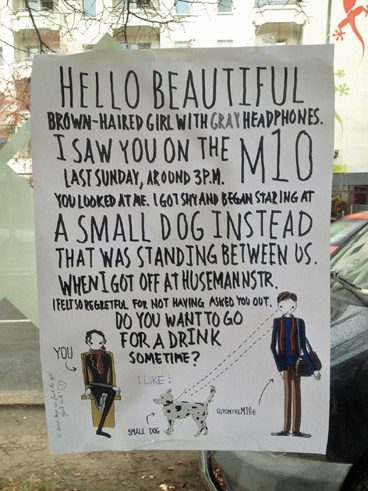 HELLO BEAUTIFUL
BROWN-HAIRED GIRL WITH GRAY HEADPHONES.
I SAW YOU ON THE M10
LAST SUNDAY, AROUND 3P.M.
YOU LOOKED AT ME. I GOT SHY AND BEGAN STARING AT
A SMALL DOG INSTEAD
THAT WAS STANDING BETWEEN US.
WHEN I GOT OFF AT HUSEMANNSTR.
I FELT SO REGRETFUL FOR NOT HAVING ASKED YOU OUT.
DO YOU WANT TO GO
FOR A DRINK
SOMETIME?
YOU
I LIKE!
SMALL DOG